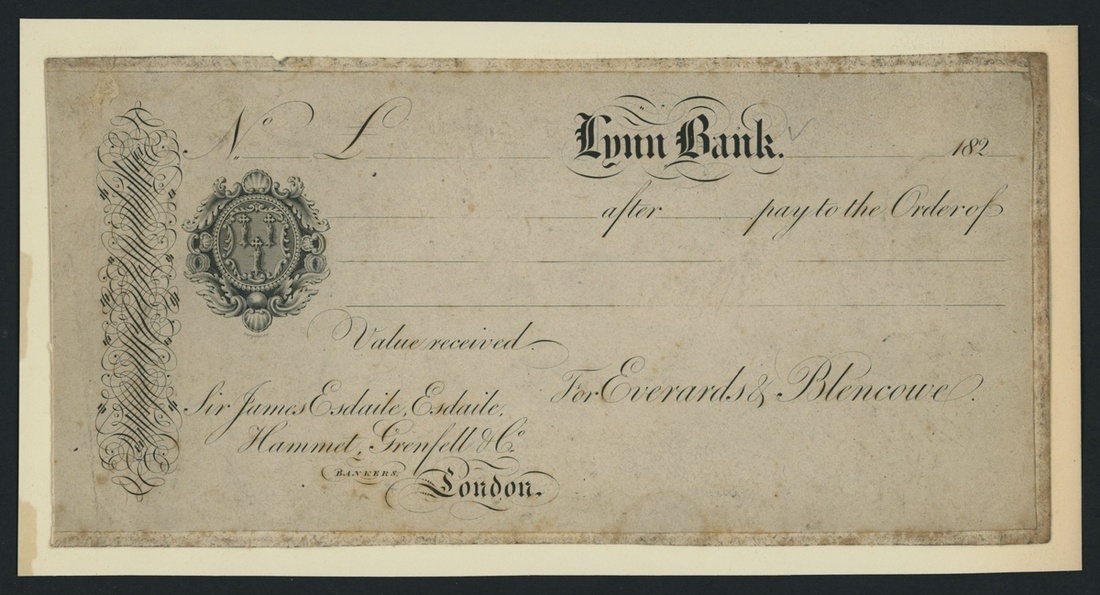 No. £ Lynn Bank. 182
after pay to the Order of
Value received
For Everards & Blencowe.
Sir James Esdaile, Esdaile,
Hammet, Grenfell & Co.
BANKERS,
London.